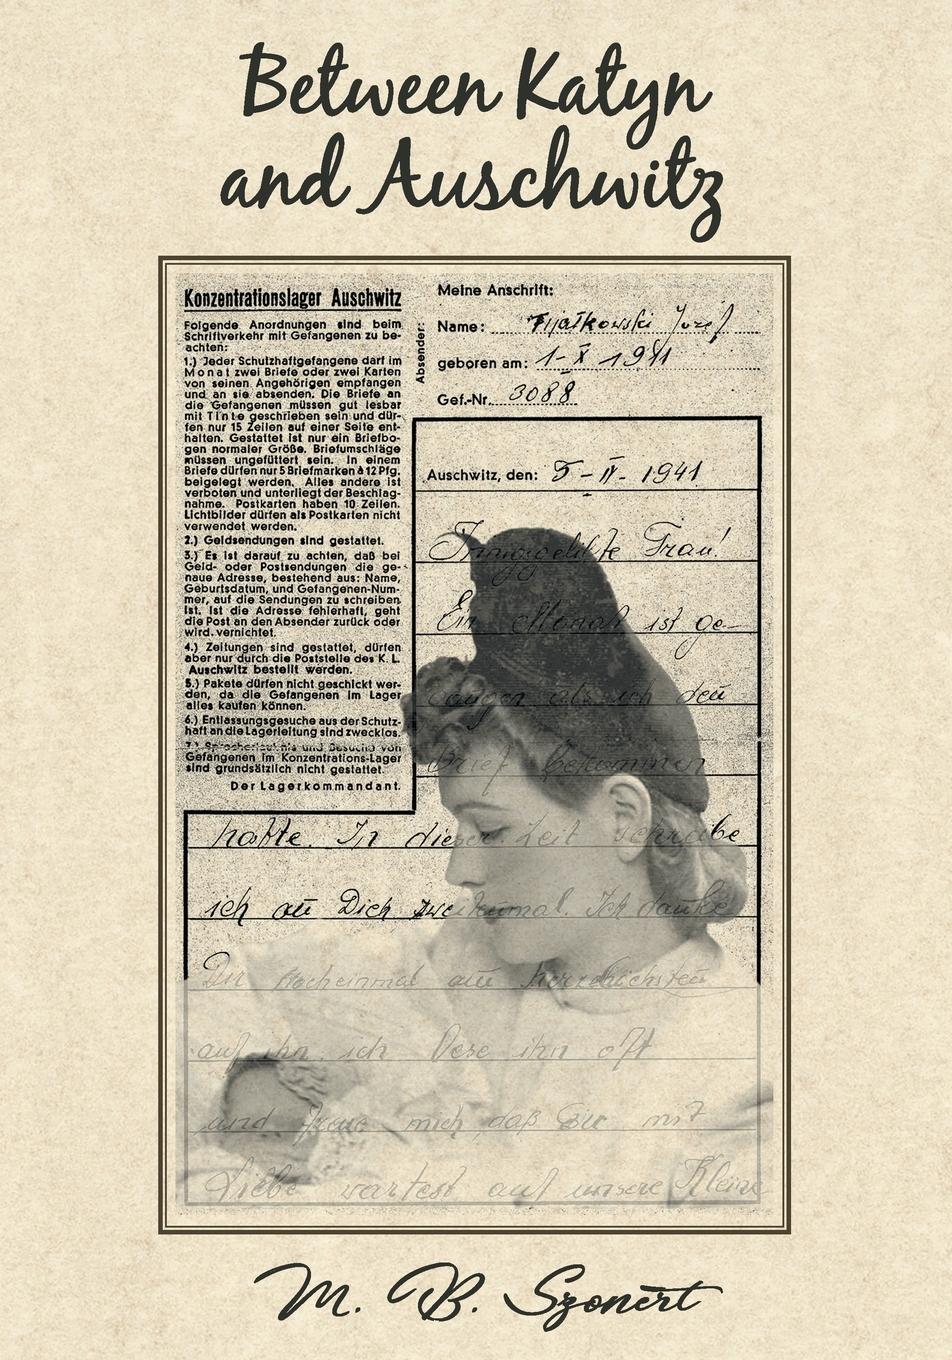 Between Katyn
and Auschwitz
Konzentrationslager Auschwitz
Folgende Anordnungen sind beim
Schriftverkehr mit Gefangenen zu be-
achten:
1.) Jeder Schutzhaftgefangene darf im
Monat zwei Briefe oder zwei Karten
von seinen Angehörigen empfangen
und an sie absenden. Die Briefe an
die Gefangenen müssen gut lesbar
mit Tinte geschrieben sein und dür-
fen nur 15 Zeilen auf einer Seite ent-
halten. Gestattet ist nur ein Briefbo-
gen normaler Größe. Briefumschläge
müssen ungefüttert sein. In einem
Briefe dürfen nur 5 Briefmarken à 12 Pfg.
beigelegt werden. Alles andere ist
verboten und unterliegt der Beschlag-
nahme. Postkarten haben 10 Zeilen.
Lichtbilder dürfen als Postkarten nicht
verwendet werden.
2.) Geldsendungen sind gestattet.
3.) Es ist darauf zu achten, daß bei
Geld- oder Postsendungen die ge-
naue Adresse, bestehend aus: Name,
Geburtsdatum, und Gefangenen-Num-
mer, auf die Sendungen zu schreiben
ist. Ist die Adresse fehlerhaft, geht
die Post an den Absender zurück oder
wird vernichtet.
4.) Zeitungen sind gestattet, dürfen
aber nur durch die Poststelle des K. L.
Auschwitz bestellt werden.
5.) Pakete dürfen nicht geschickt wer-
den, da die Gefangenen im Lager
alles kaufen können.
6.) Entlassungsgesuche aus der Schutz-
haft an die Lagerleitung sind zwecklos.
7.) Sprecherlaubnis und Besuche von
Gefangenen im Konzentrations-Lager
sind grundsätzlich nicht gestattet.
Der Lagerkommandant.
Absender:
Meine Anschrift:
Name: Fijałkowski Józef
geboren am: 1-X 1911
Gef.-Nr. 3088
Auschwitz, den: 5-II-1941
Frau!
Ein Monat ist ge-
als ich den
Brief bekommen
hatte. In dieser Zeit schreibe
ich an Dich zweiteinmal. Ich danke
Dir nocheinmal am herzlichsten
auf ihn. ich lese ihn oft
und freue mich daß Du mit
Liebe wartest auf unsere Kleine
M. B. Szonert